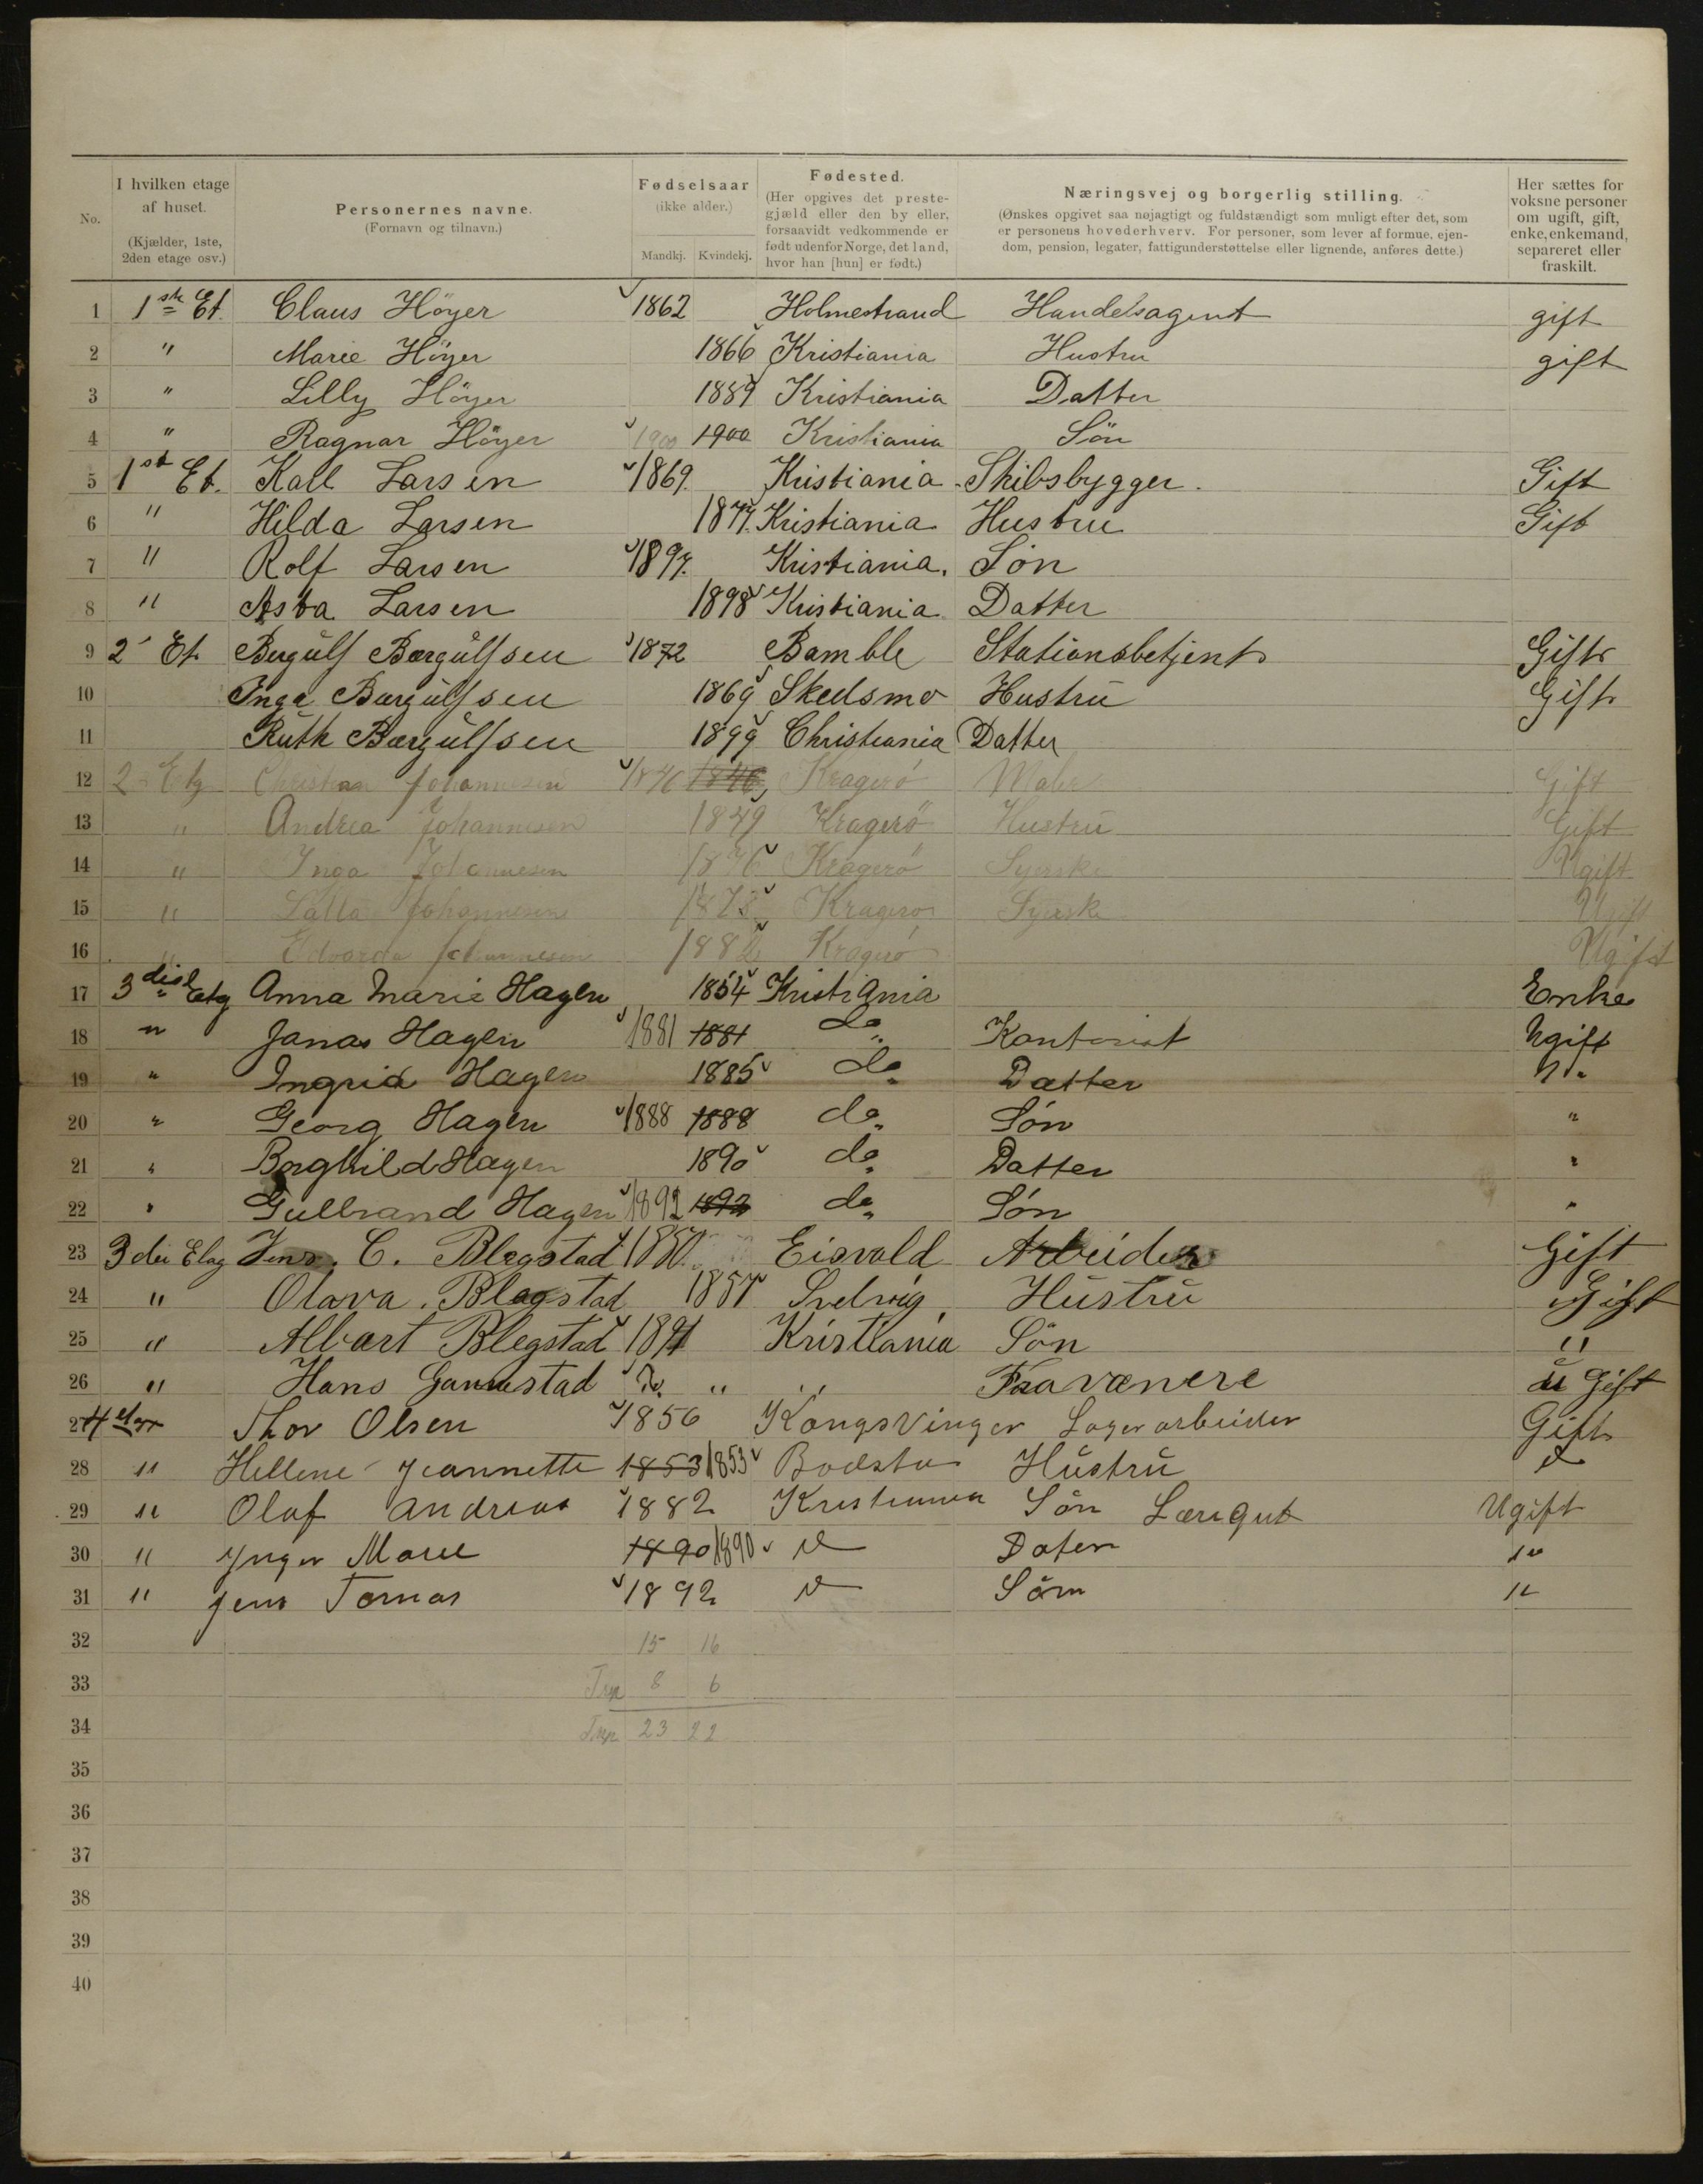 No.
I hvilken etage af huset. (Kjælder, 1ste, 2den etage osv.)
Personernes navne. (Fornavn og tilnavn.)
Fødselsaar (ikke alder.) Mandkj. Kvindekj.
Fødested. (Her opgives det prestegjæld eller den by eller, forsaavidt vedkommende er født udenfor Norge, det land, hvor han [hun] er født.)
Næringsvej og borgerlig stilling. (Ønskes opgivet saa nøjagtigt og fuldstændigt som muligt efter det, som er personens hovederhverv. For personer, som lever af formue, ejendom, pension, legater, fattigunderstøttelse eller lignende, anføres dette.)
Her sættes for voksne personer om ugift, gift, enke, enkemand, separeret eller fraskilt.
1 1ste Et. Claus Höyer 1862 Holmestrand Handelsagent gift
2 " Marie Höyer 1866 Kristiania Hustru gift
3 " Lilly Höyer 1889 Kristiania Datter
4 " Ragnar Höyer 1900 1900 Kristiania Sön
5 1st Et. Karl Larsen 1869. Kristiania. Skibsbygger. Gift
6 " Hilda Larsen 1877. Kristiania Hustru Gift
7 " Rolf Larsen 1897. Kristiania. Søn
8 " Asta Larsen 1898 Kristiania. Datter
9 2' Et. Bergulf Bergulfsen 1872 Bamble Stationsbetjent Gift
10 Inga Bergulfsen 1869 Skedsmo Hustru Gift
11 Ruth Bergulfsen 1899 Christiania Datter
12 2 Etg Christian Johannesen 1846 1846 Kragerö Maler Gift
13 " Andrea Johannesen 1849 Kragerö Hustru Gift
14 " Inga Johannesen 1876 Kragerö Syerske Ugift
15 " Johannesen Kragerö Syerske Ugift
16 " Edvarda Johannesen 1882 Kragerö Ugift
17 3die Etg Anna Marie Hagen 1854 Kristiania Enke
18 " Jonas Hagen 1881 1881 do Kontorist Ugift
19 " Ingrid Hagen 1885 do Datter
20 " Georg Hagen 1888 1888 do Søn "
21 " Borghild Hagen 1890 do Datter "
22 " Gulbrand Hagen 1892 1892 do Søn "
23 3die Etag Jens. C. Blegstad 1850. Eisvold Arbeider Gift
24 " Olava. Blegstad 1857 Svelvig Hustru Gift
25 " Albart Blegstad 1891 Kristiania Sön "
26 " Hans " " Fraværere Gift
27 4 etg Thor Olsen 1856 Kongsvinger Lagerarbeider Gift
28 " Hellene Jeannette 1853 1853 Hustru
29 " Olaf Andreas 1882 Kristiania Sön Læregut Ugift
30 " Ynger Marie 1890 1890 Dater "
31 " Jens Tomas 1892 Sörn "
32 15 16
33 8 6
34 23 22
35
36
37
38
39
40